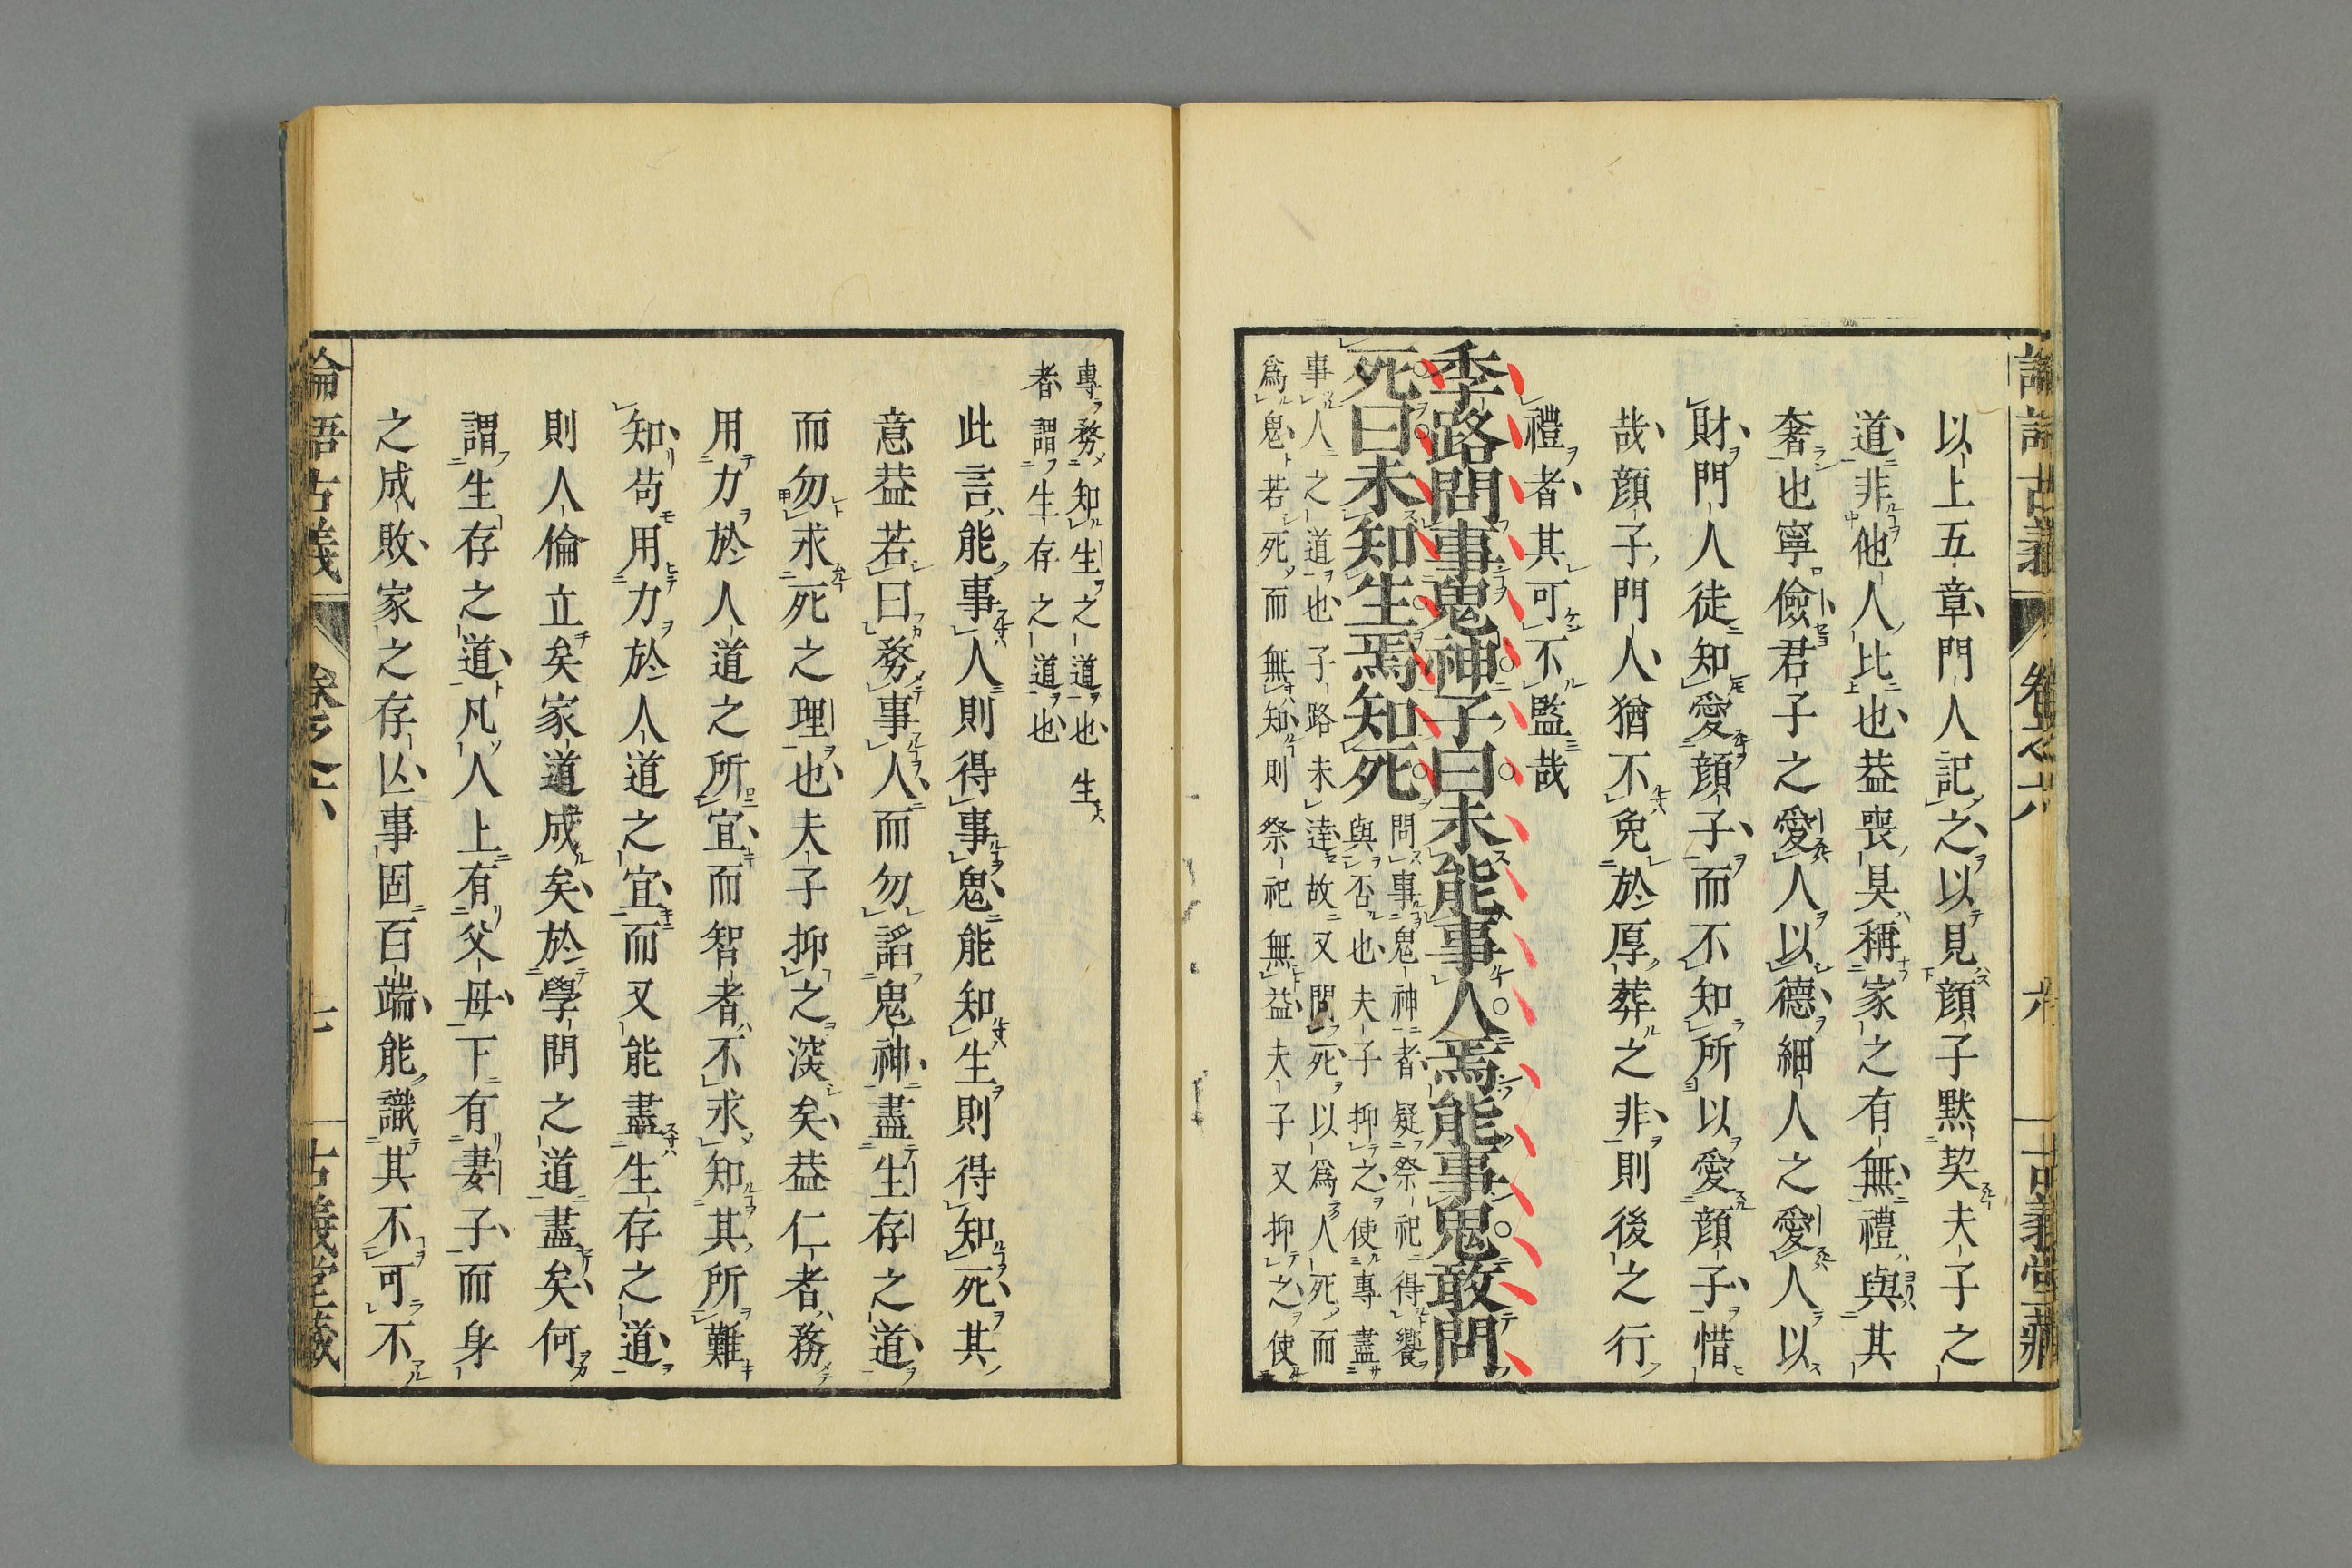 論語古義 卷之六 六 古義堂藏
以上五章門人記之以見顔子黙契夫子之
道非他人比也葢喪具稱家之有無禮與其
奢也寧儉君子之愛人以德細人之愛人以
財門人徒知愛顔子而不知所以愛顔子惜
哉顔子門人猶不免於厚葬之非則後之行
禮者其可不監哉
季路問事鬼神子曰未能事人焉能事鬼敢問
死曰未知生焉知死
問事鬼神者疑祭祀得饗
與否也夫子抑之使專盡
事人之道也子路未達故又問死以爲人死而
爲鬼若死而無知則祭祀無益夫子又抑之使
專務知生之道也生
者謂生存之道也
此言能事人則得事鬼能知生則得知死其
意葢若曰務事人而勿謟鬼神盡生存之道
而勿求死之理也夫子抑之深矣葢仁者務
用力於人道之所宜而智者不求知其所難
知苟用力於人道之宜而又能盡生存之道
則人倫立矣家道成矣於學問之道盡矣何
謂生存之道凡人上有父母下有妻子而身
之成敗家之存亾事固百端能識其不可不
論語古義 卷之六 七 古義堂藏